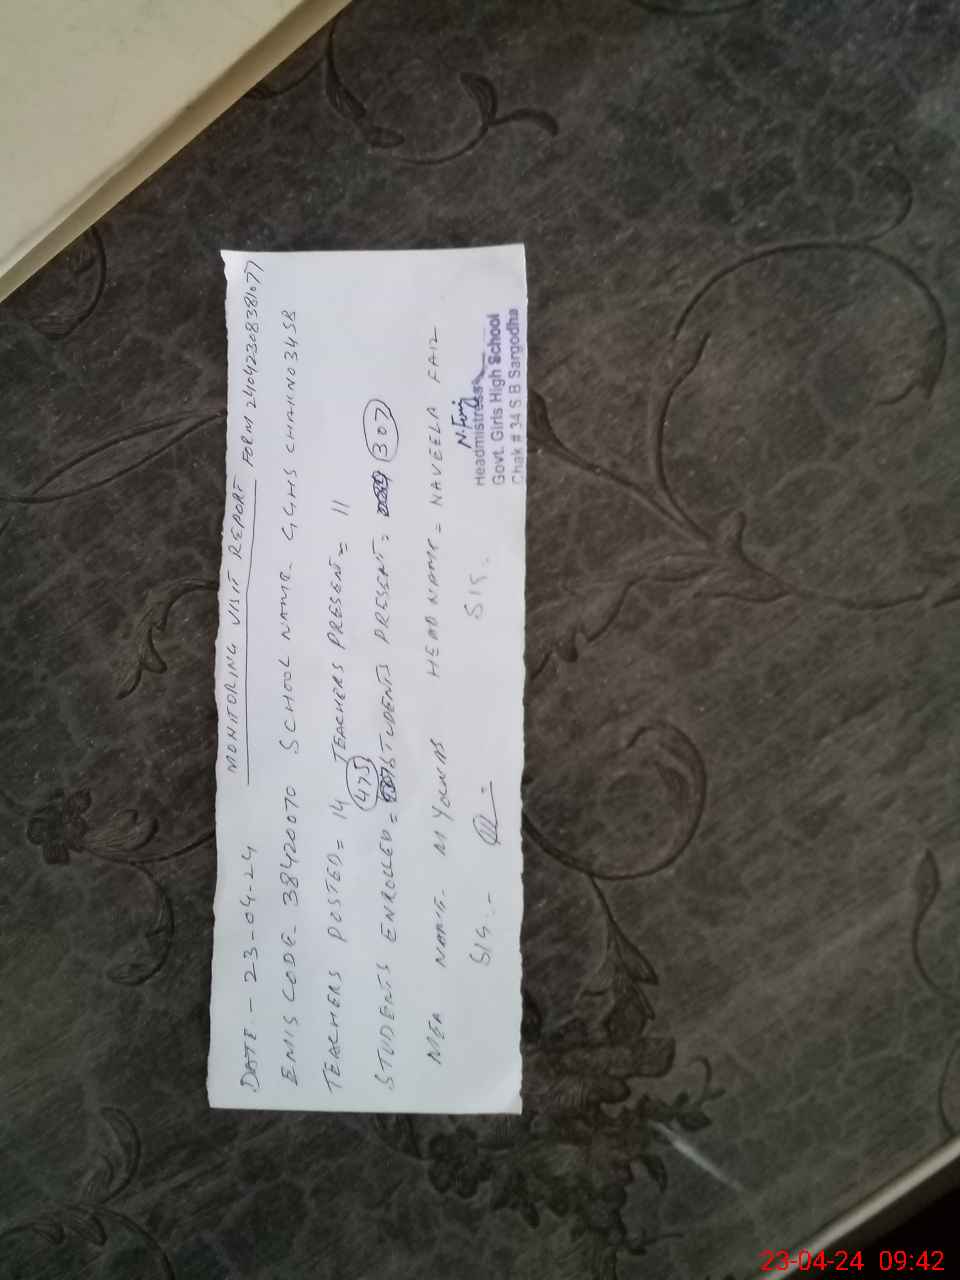 MONITORING VISIT REPORT FORM 24042308381077
DATE - 23-04-24
EMIS CODE - 38420070 SCHOOL NAME - GGHS CHAK NO 34SB
TEACHERS POSTED = 14 TEACHERS PRESENT = 11
STUDENTS ENROLLED = 475 STUDENTS PRESENT = 307
MEA NAME - M YOUNAS HEAD NAME = NAVEELA FAIZ
SIG :- SIG :
Headmistress
Govt. Girls High School
Chak # 34 S B Sargodha
23-04-24 09:42